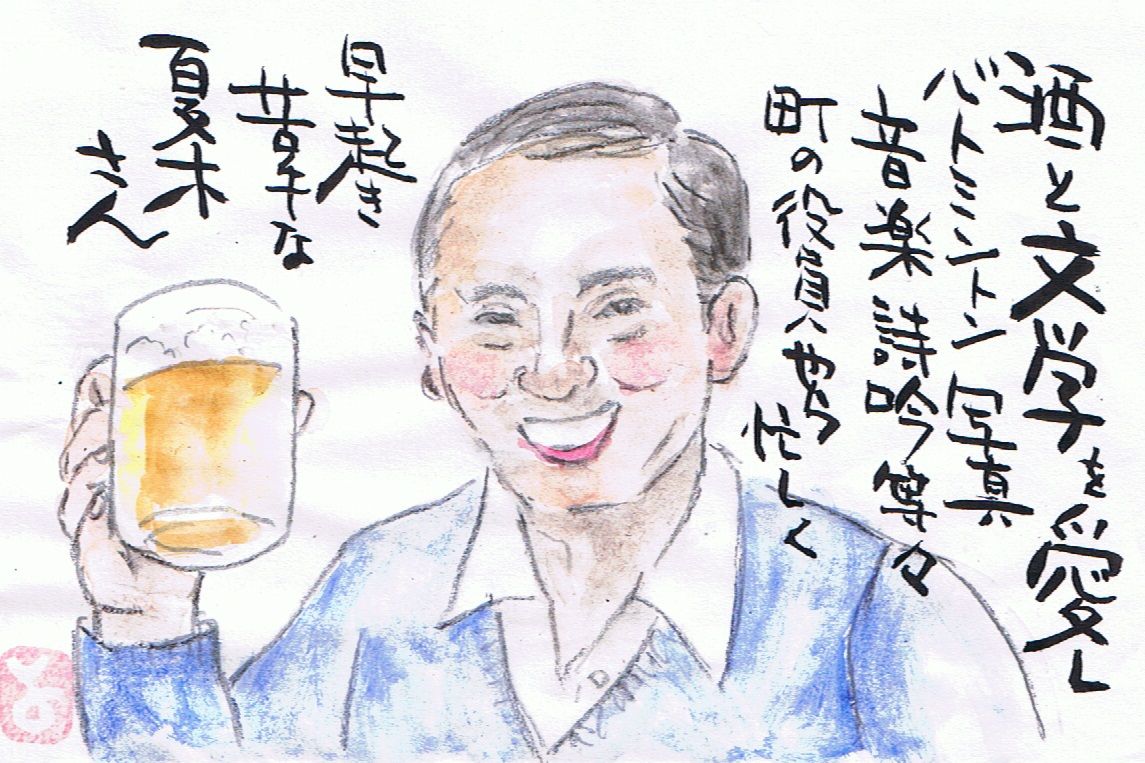 酒と文学を愛し
バトミントン写真
音楽詩吟等々
町の役員やら忙しく
早起き
苦手な
夏木
さん